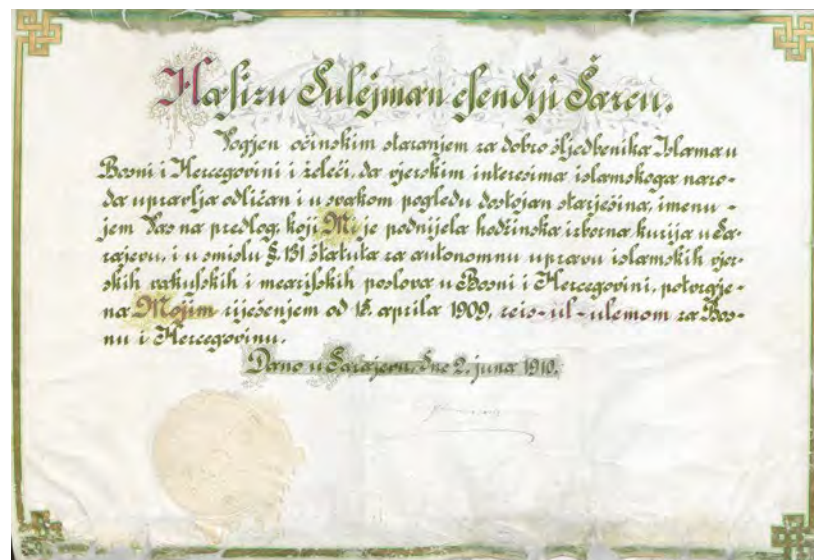 Hafizu Sulejman efendiji Šarcu.
Vogjen očinskim staranjem za dobro sljedbenika Islama u
Bosni i Hercegovini i želeći, da vjerskim interesima islamskoga naro-
da upravlja odličan i u svakom pogledu dostojan starješina, imenu-
jem Vas na predlog, koji Mi je podnijela hodžinska izborna kurija u Sa-
rajevu, i u smislu §. 131 štatuta za autonomnu upravu islamskih vjer-
skih vakufskih i mearifskih poslova u Bosni i Hercegovini, potvrgje-
na Mojim riješenjem od 15. aprila 1909, reis-ul-ulemom za Bos-
nu i Hercegovinu.
Dano u Sarajevu, dne 2. juna 1910.